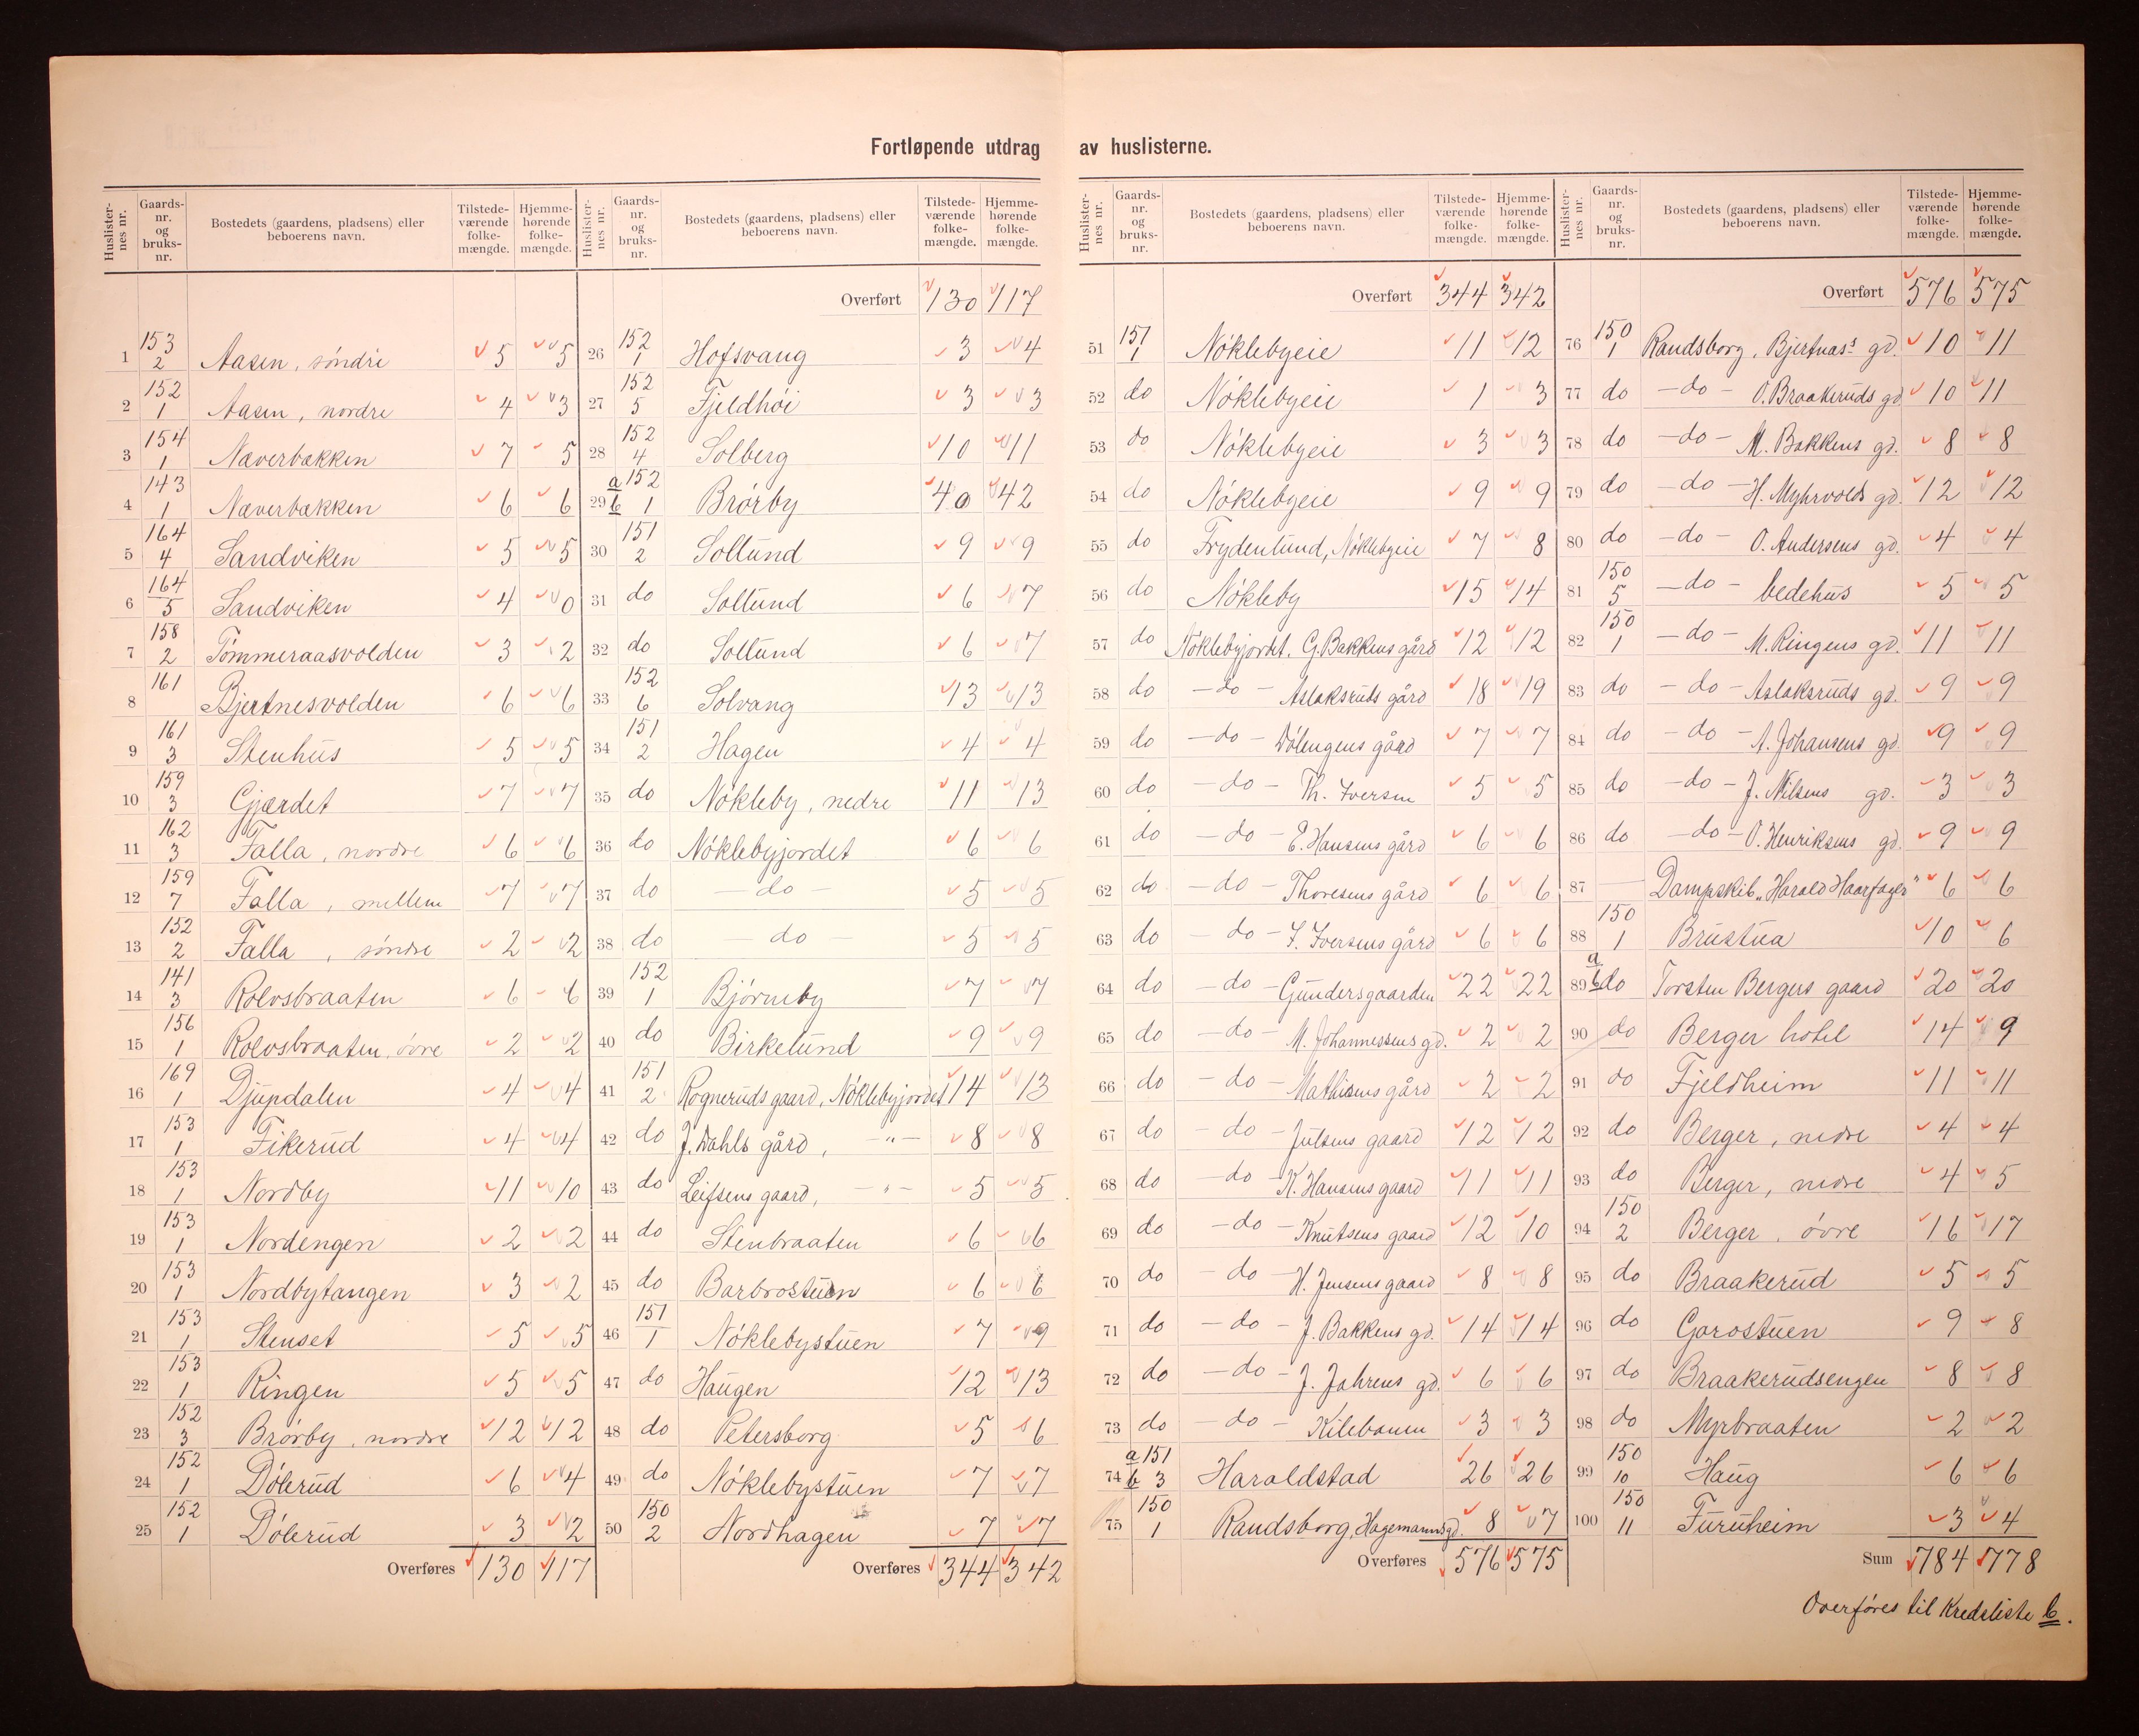 Fortløpende utdrag av huslisterne.
Huslister-nes nr. Gaards-nr. og bruks-nr. Bostedets (gaardens, pladsens) eller beboerens navn. Tilstede-værende folke-mængde. Hjemme-hørende folke-mængde.
1 153/2 Aasen, söndre 5 5
2 152/1 Aasen, nordre 4 3
3 154/1 Næverbakken 7 5
4 143/1 Næverbakken 6 6
5 164/4 Sandviken 5 5
6 164/5 Sandviken 4 0
7 158/2 Tömmeraasvolden 3 2
8 161 Bjertnesvolden 6 6
9 161/3 Stenhus 5 5
10 159/3 Gjærdet 7 7
11 162/3 Falla, nordre 6 6
12 159/7 Falla, mellem 7 7
13 152/2 Falla, söndre 2 2
14 141/3 Rolvsbraaten 6 6
15 156/1 Rolvsbraaten, övre 2 2
16 169/1 Djupdalen 4 4
17 153/1 Fikerud 4 4
18 153/1 Nordby 11 10
19 153/1 Nordengen 2 2
20 153/1 Nordbytangen 3 2
21 153/1 Stenset 5 5
22 153/1 Ringen 5 5
23 152/3 Brörby, nordre 12 12
24 152/1 Dölerud 6 4
25 152/1 Dölerud 3 2
Overføres 130 117
Huslister-nes nr. Gaards-nr. og bruks-nr. Bostedets (gaardens, pladsens) eller beboerens navn. Tilstede-værende folke-mængde. Hjemme-hørende folke-mængde.
Overført 130 117
26 152/1 Hofsvang 3 4
27 152/5 Fjeldhöi 3 3
28 152/4 Solberg 10 11
29 a b 152/1 Brörby 40 42
30 151/2 Sollund 9 9
31 do Sollund 6 7
32 do Sollund 6 7
33 152/6 Solvang 13 13
34 151/2 Hagen 4 4
35 do Nökleby, nedre 11 13
36 do Nöklebyjordet 6 6
37 do — do — 5 5
38 do — do — 5 5
39 152/1 Björneby 7 7
40 do Birkelund 9 9
41 151/2 Rogneruds gaard, Nöklebyjordet 14 13
42 do J. Dahls gård, — " — 8 8
43 do Leifsens gaard, — " — 5 5
44 do Stenbraaten 6 6
45 do Barbrostuen 6 6
46 151/1 Nöklebystuen 7 9
47 do Haugen 12 13
48 do Petersborg 5 6
49 do Nöklebystuen 7 7
50 150/2 Nordhagen 7 7
Overføres 344 342
Huslister-nes nr. Gaards-nr. og bruks-nr. Bostedets (gaardens, pladsens) eller beboerens navn. Tilstede-værende folke-mængde. Hjemme-hørende folke-mængde.
Overført 344 342
51 151/1 Nöklebyeie 11 12
52 do Nöklebyeie 1 3
53 do Nöklebyeie 3 3
54 do Nöklebyeie 9 9
55 do Frydenlund, Nöklebyeie 7 8
56 do Nökleby 15 14
57 do Nöklebyjordet. G. Bakkens gård 12 12
58 do — do — Aslaksruds gård 18 19
59 do — do — Dölengens gård 7 7
60 do — do — Th. Iversen 5 5
61 do — do — E. Hansens gård 6 6
62 do — do — Thoresens gård 6 6
63 do — do — I. Iversens gård 6 6
64 do — do — Gundersgaarden 22 22
65 do — do — M. Johannessens gd. 2 2
66 do — do — Mathisens gård 2 2
67 do — do — Julsens gaard 12 12
68 do — do — K. Hansens gaard 11 11
69 do — do — Knutsens gaard 12 10
70 do — do — H. Jensens gaard 8 8
71 do — do — J. Bakkens gd. 14 14
72 do — do — J. Jahrens gd. 6 6
73 do — do — Kilebonen 3 3
74 a b 151/3 Haraldstad 26 26
75 150/1 Randsborg, Hagemanns gd. 8 7
Overføres 576 575
Huslister-nes nr. Gaards-nr. og bruks-nr. Bostedets (gaardens, pladsens) eller beboerens navn. Tilstede-værende folke-mængde. Hjemme-hørende folke-mængde.
Overført 576 575
76 150/1 Randsborg, Bjertnæs's gd. 10 11
77 do — do — O. Braakeruds gd 10 11
78 do — do — M. Bakkens gd. 8 8
79 do — do — H. Myhrvolds gd. 12 12
80 do — do — O. Andersens gd. 4 4
81 150/5 — do — bedehus 5 5
82 150/1 — do — M. Ringens gd. 11 11
83 do — do — Aslaksruds gd. 9 9
84 do — do — A. Johansens gd. 9 9
85 do — do — J. Nilsens gd. 3 3
86 do — do — O. Henriksens gd. 9 9
87 — Dampskib „Harald Haarfager" 6 6
88 150/1 Brustua 10 6
89 a b do Torsten Bergers gaard 20 20
90 do Berger hotel 14 9
91 do Fjeldheim 11 11
92 do Berger, nedre 4 4
93 do Berger, nedre 4 5
94 150/2 Berger, övre 16 17
95 do Braakerud 5 5
96 do Garostuen 9 8
97 do Braakerudsengen 8 8
98 do Myrbraaten 2 2
99 150/10 Haug 6 6
100 150/11 Furuheim 3 4
Sum 784 778
Overföres til Kredsliste b.